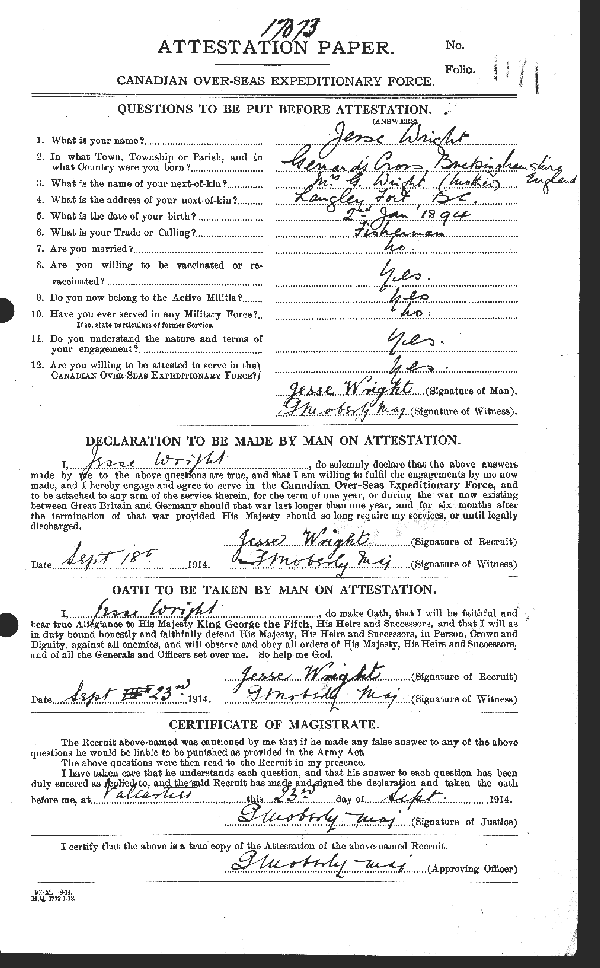 17073
ATTESTATION PAPER.
No.
Folio.
CANADIAN OVER-SEAS EXPEDITIONARY FORCE.
QUESTIONS TO BE PUT BEFORE ATTESTATION.
(ANSWERS)
1. What is your name? Jesse Wright
2. In what Town, Township or Parish, and in
what Country were you born? Gerrards Cross Buckinghamshire England
3. What is the name of your next-of-kin? Mrs G Wright (mother)
4. What is the address of your next-of-kin? Langley Fort, B.C.
5. What is the date of your birth? 2nd Jan 1894
6. What is your Trade or Calling? Fisherman
7. Are you married? no.
8. Are you willing to be vaccinated or re-
vaccinated? Yes.
9. Do you now belong to the Active Militia? Yes
10. Have you ever served in any Military Force? no.
If so, state particulars of former Service.
11. Do you understand the nature and terms of
your engagement? Yes.
12. Are you willing to be attested to serve in the
CANADIAN OVER-SEAS EXPEDITIONARY FORCE? Yes.
Jesse Wright (Signature of Man).
T Moberly Maj (Signature of Witness).
DECLARATION TO BE MADE BY MAN ON ATTESTATION.
I, Jesse Wright, do solemnly declare that the above answers
made by me to the above questions are true, and that I am willing to fulfil the engagements by me now
made, and I hereby engage and agree to serve in the Canadian Over-Seas Expeditionary Force, and
to be attached to any arm of the service therein, for the term of one year, or during the war now existing
between Great Britain and Germany should that war last longer than one year, and for six months after
the termination of that war provided His Majesty should so long require my services, or until legally
discharged.
Jesse Wright (Signature of Recruit)
Date Sept 18th 1914. Moberly Maj (Signature of Witness)
OATH TO BE TAKEN BY MAN ON ATTESTATION.
I, Jesse Wright, do make Oath, that I will be faithful and
bear true Allegiance to His Majesty King George the Fifth, His Heirs and Successors, and that I will as
in duty bound honestly and faithfully defend His Majesty, His Heirs and Successors, in Person, Crown and
Dignity, against all enemies, and will observe and obey all orders of His Majesty, His Heirs and Successors,
and of all the Generals and Officers set over me. So help me God.
Jesse Wright (Signature of Recruit)
Date Sept 23rd 1914. Moberly Maj (Signature of Witness)
CERTIFICATE OF MAGISTRATE.
The Recruit above-named was cautioned by me that if he made any false answer to any of the above
questions he would be liable to be punished as provided in the Army Act.
The above questions were then read to the Recruit in my presence.
I have taken care that he understands each question, and that his answer to each question has been
duly entered as replied to, and the said Recruit has made and signed the declaration and taken the oath
before me, at Valcartier this 23rd day of Sept 1914.
Moberly Maj (Signature of Justice)
I certify that the above is a true copy of the Attestation of the above-named Recruit.
Moberly Maj (Approving Officer)